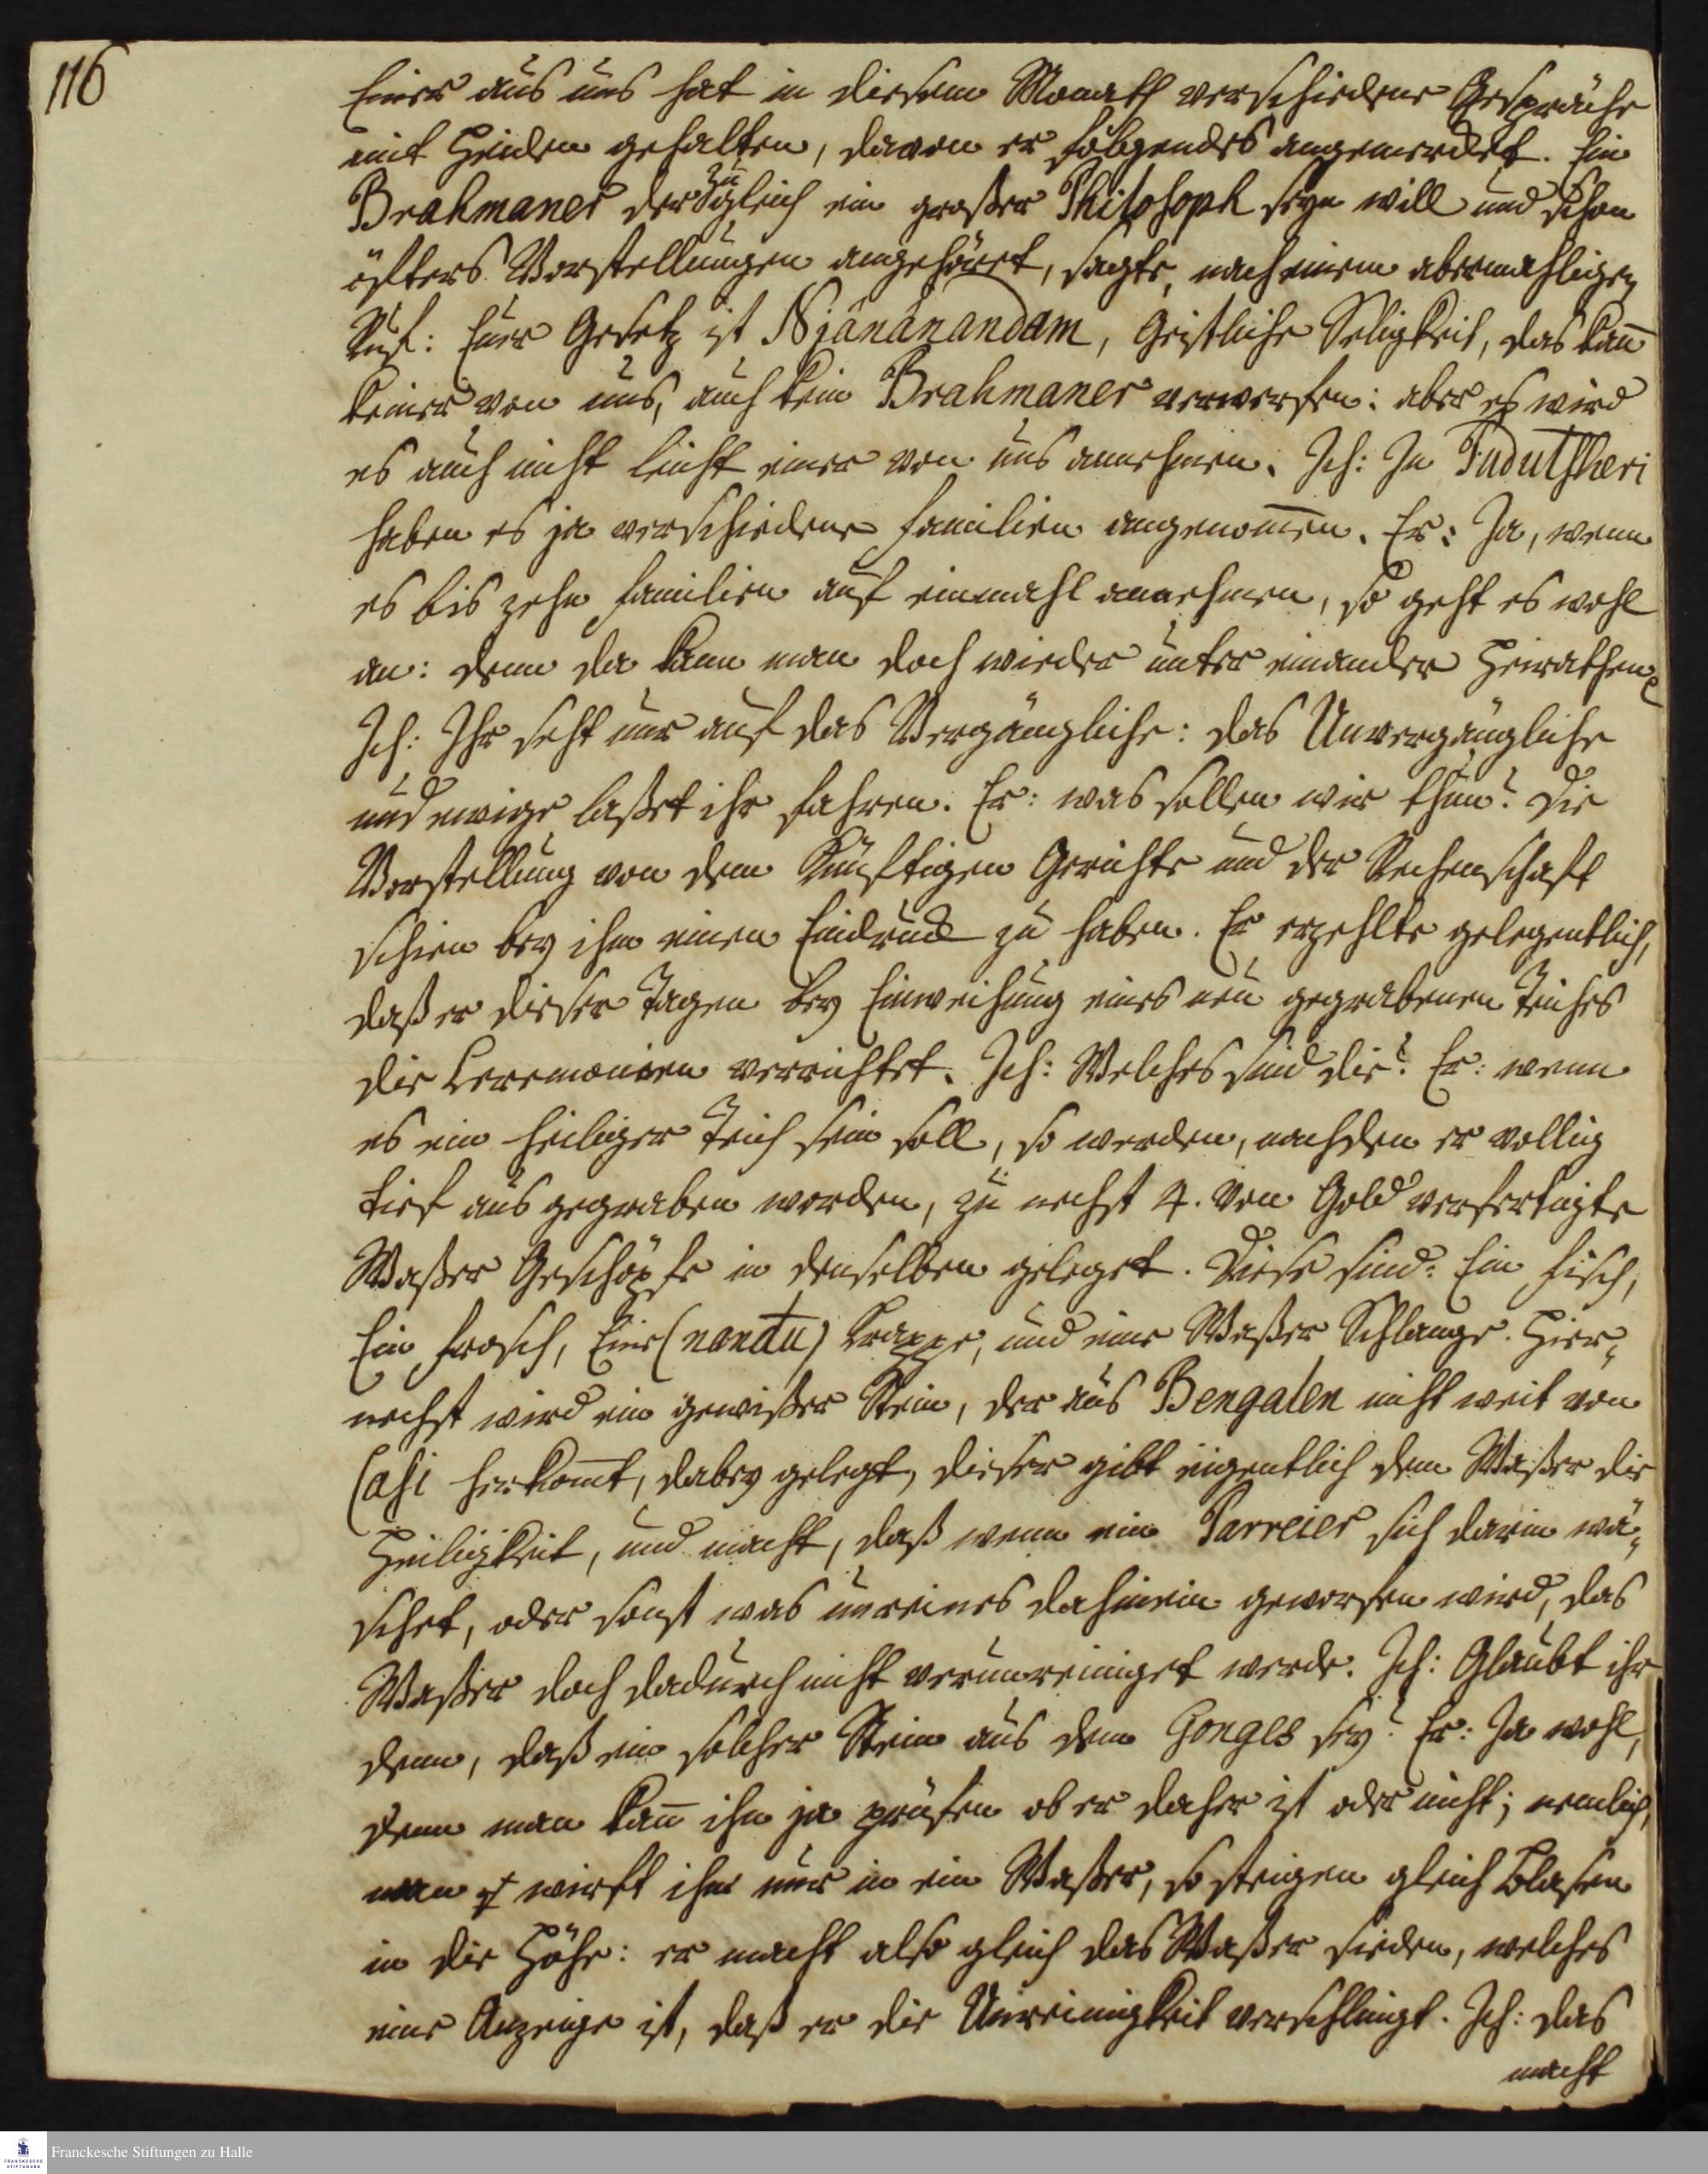 116
Einer aus uns hat in diesem Monath verschiedene Gespräche
mit Heiden gehalten, davon er folgendes angemercket. Ein
Brahmaner der zugleich ein großer Philosoph seyn will und schon
öfters Vorstellungen angehöret, sagte, nach einem abermahligen
Ruf: Euer Gesetz ist Njânânandam, Geistliche Seligkeit, das kañ
keiner von uns, auch kein Brahmaner verwerfen: aber es wird
es auch nicht leicht einer von uns annehmen. Ich: In Tudutscheri
haben es ja verschiedene Familien angenom̄en. Er: Ja, wenn
es bis zehn Familien auf einmahl annehmen, so geht es wohl
an: denn da kann man doch wieder unter einander Heirathen.
Ich: Ihr seht nur auf das Vergängliche: das Unvergängliche
und ewige laßet ihr fahren. Er: was sollen wir thun? Die
Vorstellung von dem Künftigen Gerichte und der Rechenschaft
schien bey ihm einen Eindruck zu haben. Er erzehlte gelegentlich,
daß er dieser Tagen bey Einweihung eines neu gegrabenen Teiches
die Ceremonien verrichtet. Ich: Welches sind die? Er: wenn
es ein heiliger Teich sein soll, so werden, nachdem er vollig
tief aus gegraben worden, zu nechst 4. von Gold verfertigte
Waßer Geschöpfe in denselben geleget. Diese sind: Ein Fisch,
Ein Frosch, Eine (nandu) Krappe, und eine Waßer Schlange. Hier-
nechst wird ein gewißer Stein, der aus Bengalen nicht weit von
Casi herkom̄t, dabey gelegt, dieser gibt eigentlich dem Waßer die
Heiligkeit, und macht, daß wenn ein Parreier sich darin wä-
schet, oder sonst was unreines dahinein geworfen wird, das
Waßer doch dadurch nicht verunreiniget werde. Ich: Glaubt ihr
denn, daß ein solcher Stein aus dem Ganges sey? Er: Ja wohl,
denn man kañ ihn ja prüfen ob er daher ist oder nicht; nemlich,
man wirft ihn nur in ein Waßer, so steigen gleich Blasen
in die Höhe: er macht also gleich das Waßer sieden, welches
eine Anzeige ist, daß er die Unreinigkeit verschlingt. Ich: das
macht
Franckesche Stiftungen zu Halle